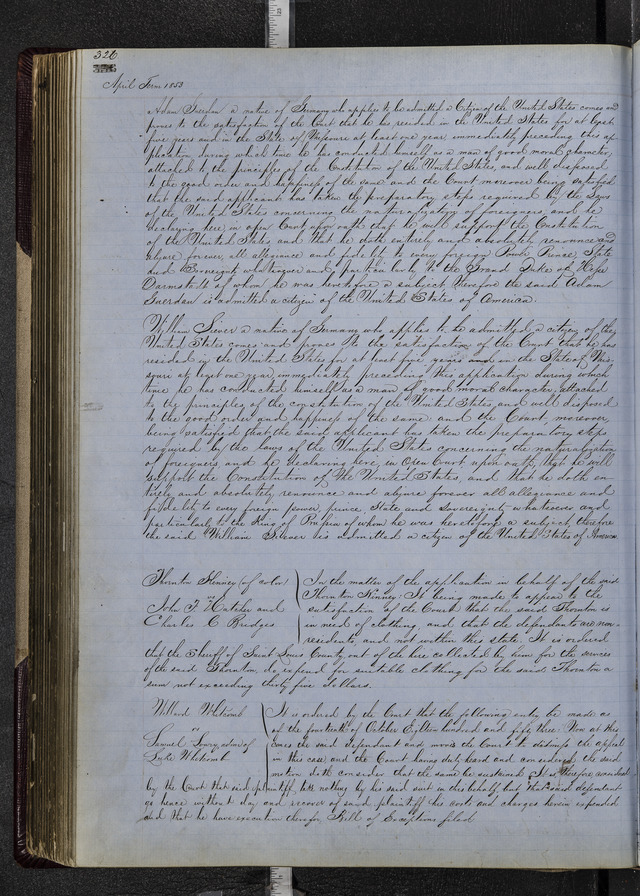 326
April Term 1853
Adam Suerdon a native of Germany who applies to be admitted a Citizen of the United States, comes and
proves to the satisfaction of the Court that he has resided in the United States for at least
five years and in the State of Missouri at least one year immediately preceding this ap-
plication during which time he has conducted himself as a man of good moral character,
attached to the principles of the Constitution of the United States, and well disposed
to the good order and happiness of the same and the Court moreover being satisfied
that the said applicant has taken the preparatory steps required by the Laws
of the United States concerning the naturalization of foreigners, and he
declaring here in open Court upon oath that he will support the Constitution
of the United States, and that he doth entirely and absolutely renounce and
abjure forever all allegiance and fidelity to every foreign Power Prince State
and Sovereignty whatsoever and particularly to the Grand Duke of Hesse
Darmstadt of whom he was heretofore a subject, therefore the said Adam
Suerdon is admitted a citizen of the United States of America.
William Siever a native of Germany who applies to be admitted a citizen of the
United States comes and proves to the satisfaction of the Court that he has
resided in the United States for at least five years and in the State of Mis-
souri at least one year, immediately preceding this application during which
time he has conducted himself as a man of good moral character, attached
to the principles of the constitution of the United States, and well disposed
to the good order and happiness of the same and the Court, moreover,
being satisfied that the said applicant has taken the preparatory steps
required by the laws of the United States concerning the naturalization
of foreigners and he declaring here in Open Court upon oath, that he will
support the Constitution of the United States, and that he doth en-
tirely and absolutely renounce and abjure forever all allegiance and
fidelity to every foreign power, prince, State and Sovereignty whatever and
particularly to the King of Prussia of whom he was heretofore a subject, therefore
the said William Siever is admitted a citizen of the United States of America
Thornton Kinney (of color)
vs
John F. Hatcher and
Charles C Bridges
In the matter of the application in behalf of the said
Thornton Kinney: It being made to appear to the
satisfaction of the Court that the said Thornton is
in need of clothing, and that the defendants are non-
residents, and not within this state. It is ordered
that the Sheriff of Saint Louis County, out of the hire collected by him for the services
of the said Thornton, do expend for suitable clothing for the said Thornton a
sum not exceeding thirty five dollars.
Willard Whitcomb
vs
Samuel Lowry, admr of
Luke Whitcomb
It is ordered by the Court that the following entry be made as
of the fourteenth of October Eighteen hundred and fifty three. Now at this
comes the said defendant and moves the Court to dismiss the appeal
in this case and the Court having duly heard and considered the said
motion doth consider that the same be sustained. It is therefore considered
by the Court that said plaintiff take nothing by his said suit in this behalf, but that said defendant
go hence without day and recover of said plaintiff his costs and charges herein expended
and that he have execution therefor. Bill of Exceptions filed